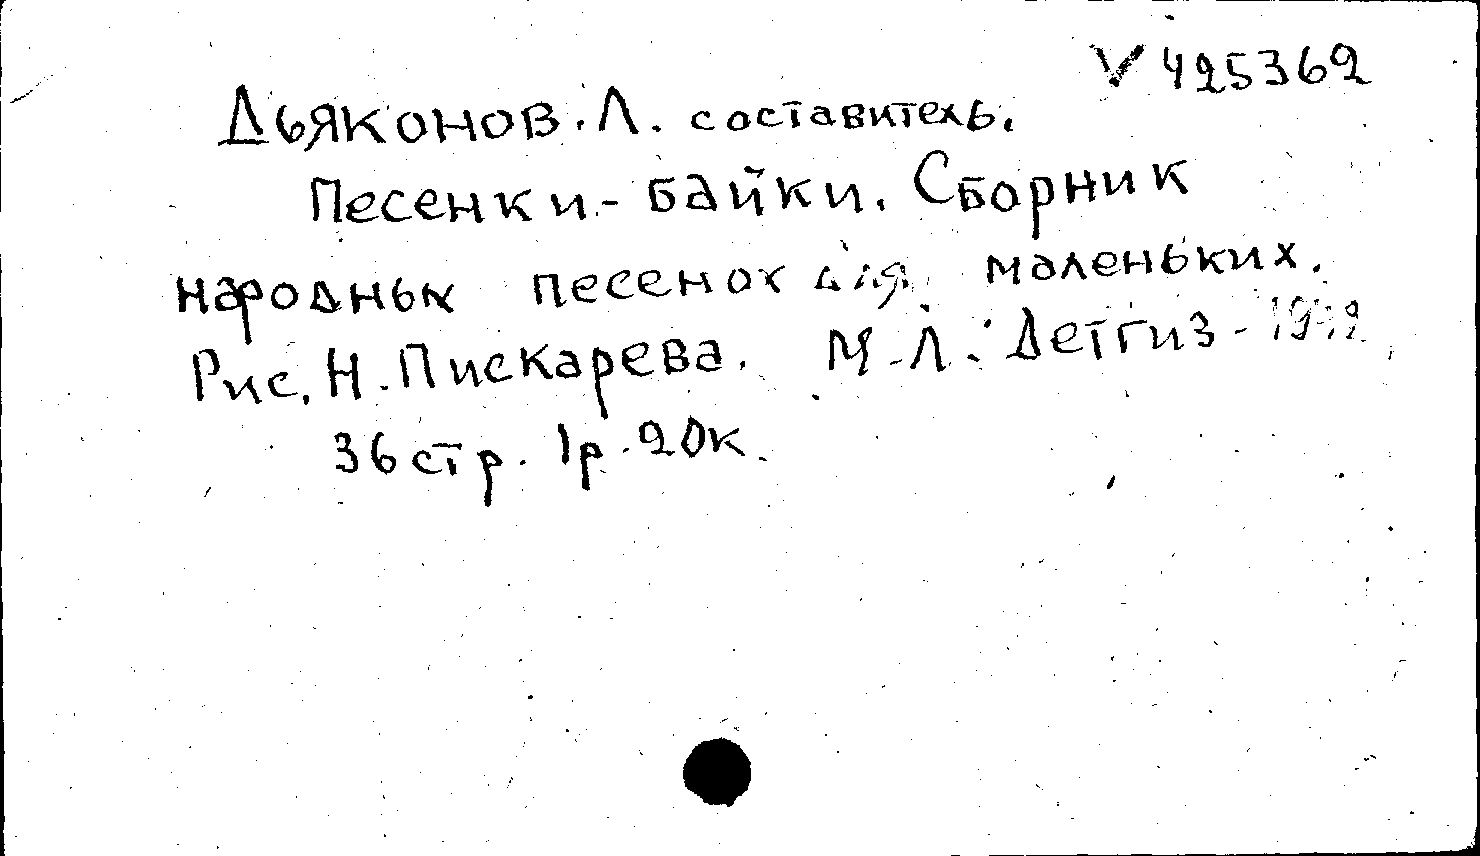 V 425362
Дьяконов. Л. составитель.
Песенки-байки. Сборник
народных песенок для маленьких.
Рис. Н. Пискарева. М.-Л. Детгиз-
36 стр. 1р. 20к.